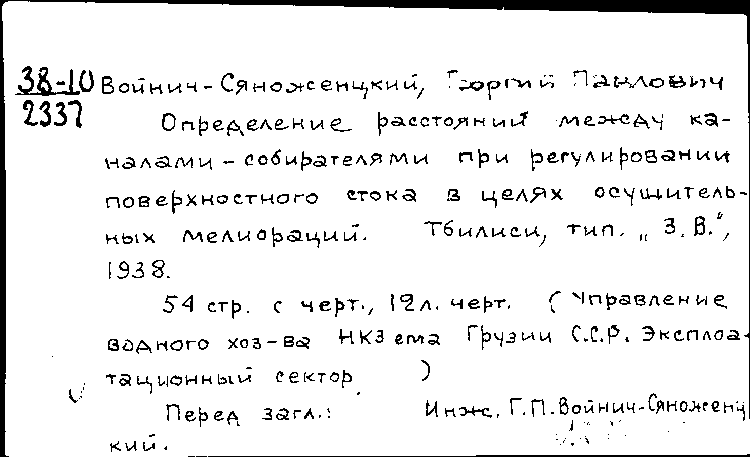 38-10 Войнич-Сяноженцкий, Георгий Павлович
2337
Определение расстояний между ка-
налами-собирателями при регулировании
поверхностного стока в целях осушитель-
ных мелиораций. Тбилиси, тип. „З.В.",
1938.
54 стр. с черт., 12 л. черт. (Управление
водного хоз-ва НКЗема Грузии С.С.Р. Эксплоа-
тационный сектор )
Перед загл.: Инж. Г.П. Войнич-Сяноженц
кий.